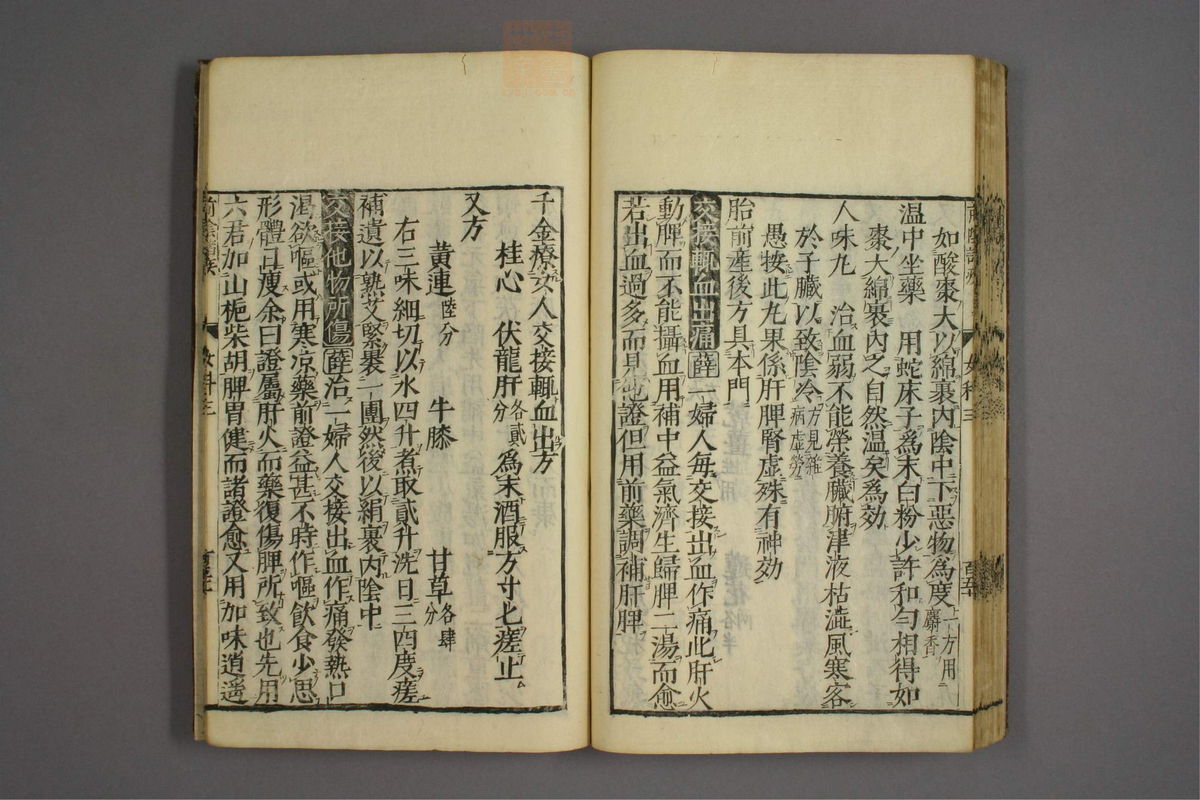 如酸棗大以綿裹内陰中下惡物為度一方用麝香
温中坐藥 用蛇床子為末白粉少許和勻相得如
棗大綿裹内之自然温矣為効
人味丸 治血弱不能榮養臟腑津液枯澁風寒客
於子臟以致陰冷方見雜病虛勞
愚按此丸果係肝脾腎虛殊有神効
胎前產後方具本門
交接輒血出痛 薛一婦人每交接出血作痛此肝火
動脾而不能攝血用補中益氣濟生歸脾二湯而愈
若出血過多而見他證但用前藥調補肝脾
千金療女人交接輒血出方
桂心 伏龍肝各貳分 為末酒服方寸匕瘥止
又方
黃連陸分 牛膝 甘草各肆分
右三味細切以水四升煮取貳升洗日三四度瘥
補遺以熟艾緊裹一團然後以絹裹内陰中
交接他物所傷 薛治一婦人交接出血作痛發熱口
渴欲嘔或用寒凉藥前證益甚不時作嘔飲食少思
形體日瘦余曰證屬肝火而藥復傷脾所致也先用
六君加山梔柴胡脾胃健而諸證愈又用加味逍遥
女科三
女科三